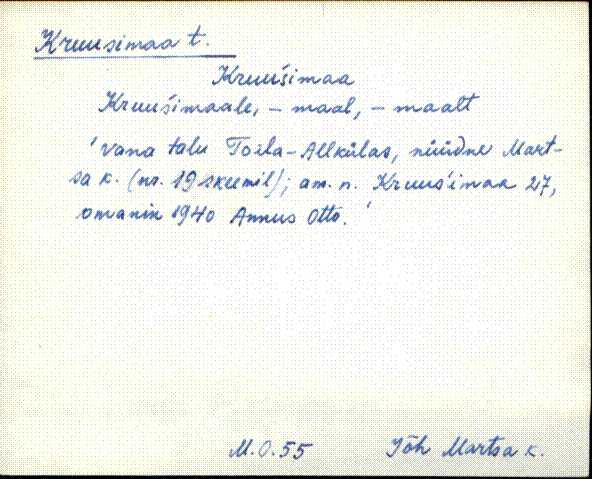 Kruusimaa t.
Kruuśimaa
Kruuśimaale, – maal, – maalt
'vana talu Toila-Allkülas, nüüdne Mart-
sa k. (nr. 19 skeemil); am. n. Kruuśimaa 27,
omanin 1940 Annus Otto.'
M.O.55 Jõh Martsa k.